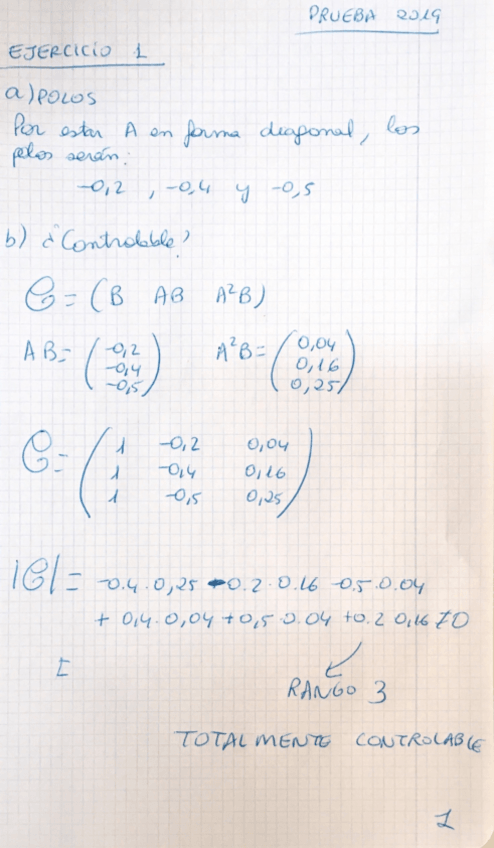 PRUEBA 2019
EJERCICIO 1
a) POLOS
Por estar A en forma diagonal, los
polos serán:
-0,2 , -0,4 y -0,5
b) ¿Controlable?
C = (B AB A²B)
AB = (-0,2 -0,4 -0,5) A²B = (0,04 0,16 0,25)
C = (1 -0,2 0,04
1 -0,4 0,16
1 -0,5 0,25)
|C| = -0.4·0,25 -0.2·0.16 -0.5·0.04
+ 0,4·0,04 +0,5·0.04 +0.2 0,16 ≠0
RANGO 3
TOTALMENTE CONTROLABLE
1